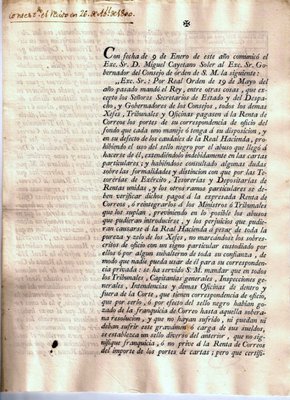 ✠
Con fecha de 9 de Enero de este año comunicó el
Exc. Sr. D. Miguel Cayetano Soler al Exc. Sr. Go-
bernador del Consejo de órden de S. M. la siguiente:
„Exc. Sr.: Por Real Orden de 19 de Mayo del
año pasado mandó el Rey, entre otras cosas, que ex-
cepto los Señores Secretarios de Estado y del Despa-
cho, y Gobernadores de los Consejos, todos los demas
Xefes, Tribunales y Oficinas pagasen á la Renta de
Correos los portes de su correspondencia de oficio del
fondo que cada uno maneje ó tenga á su disposicion, y
en su defecto de los caudales de la Real Hacienda, pro-
hibiendo el uso del sello negro por el abuso que llegó á
hacerse de él, extendiéndolo indebidamente en las cartas
particulares; y habiéndose excitado algunas dudas
sobre las formalidades y distincion con que por las Te-
sorerías de Exército, Tesorerías y Depositarías de
Rentas unidas, y los otros ramos particulares se de-
ben verificar dichos pagos á la expresada Renta de
Correos, ó reintegrarlos á los Ministros ó Tribunales
que los suplan, previniendo en lo posible los abusos
que pudieran introducirse, y los perjuicios que pudie-
ran causarse á la Real Hacienda á pesar de toda la
pureza y zelo de los Xefes, no marcándose los sobres-
critos de oficio con un signo particular custodiado por
ellos ó por algun subalterno de toda su confianza, de
modo que nadie pueda usar de él para su corresponden-
cia privada: se ha servido S. M. mandar que en todos
los Tribunales, Capitanías generales, Inspecciones ge-
nerales, Intendencias y demas Oficinas de dentro y
fuera de la Corte, que tienen correspondencia de oficio,
que por serlo, ó por efecto del sello negro habian go-
zado de la franquicia de Correo hasta aquella sobera-
na resolucion, y que no hayan sufrido, ni puedan ni
deban sufrir este gravámen ó carga de sus sueldos,
se establezca un sello diverso del anterior, que no sig-
nifique franquicia, ó no prive á la Renta de Correos
del importe de los portes de cartas; pero que certifi-